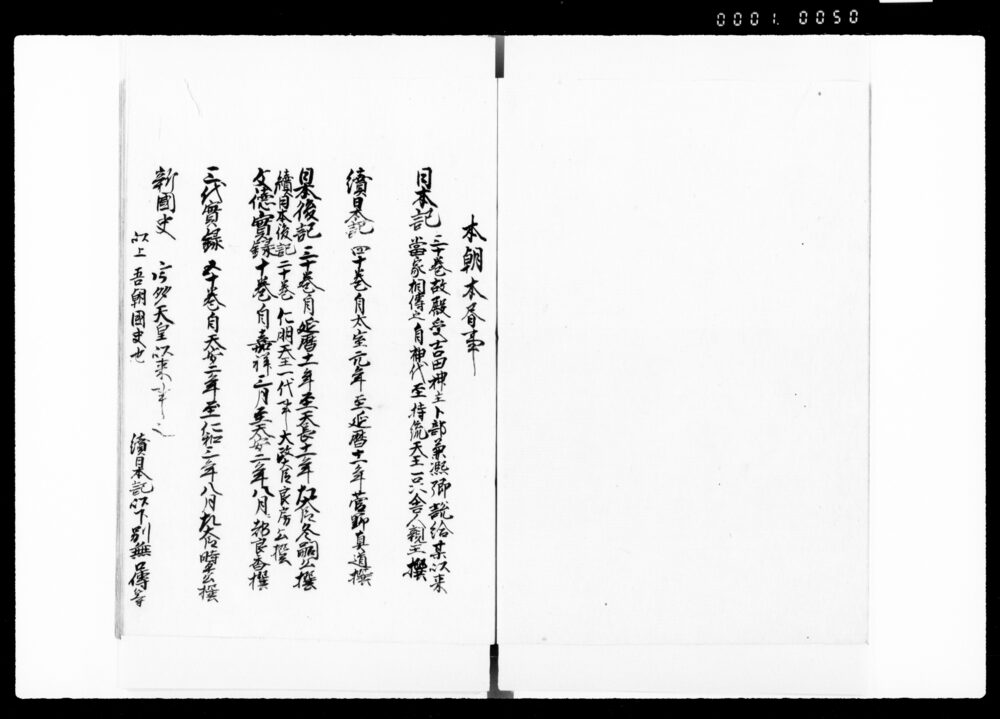 0001 0050
本朝本書事
日本記 三十巻故殿受吉田神主卜部兼凞卿説給其以来
當家相傳之自神代至持統天王一品舎人親王撰
續日本記 四十巻自太宝元年至延暦十一年菅野真道撰
日本後記 三十巻自延暦十一年至天長十年左大臣冬嗣公撰
續日本後記 二十巻 仁明天王一代事 太政官良房公撰
文徳實録 十巻自嘉祥三月至天安二年八月 都良香撰
三代實録 五十巻自天安二年至仁和三年八月左大臣時平公撰
新國史 宇多天皇以来事之
以上 吾朝國史也 續日本記以下別無口傳等